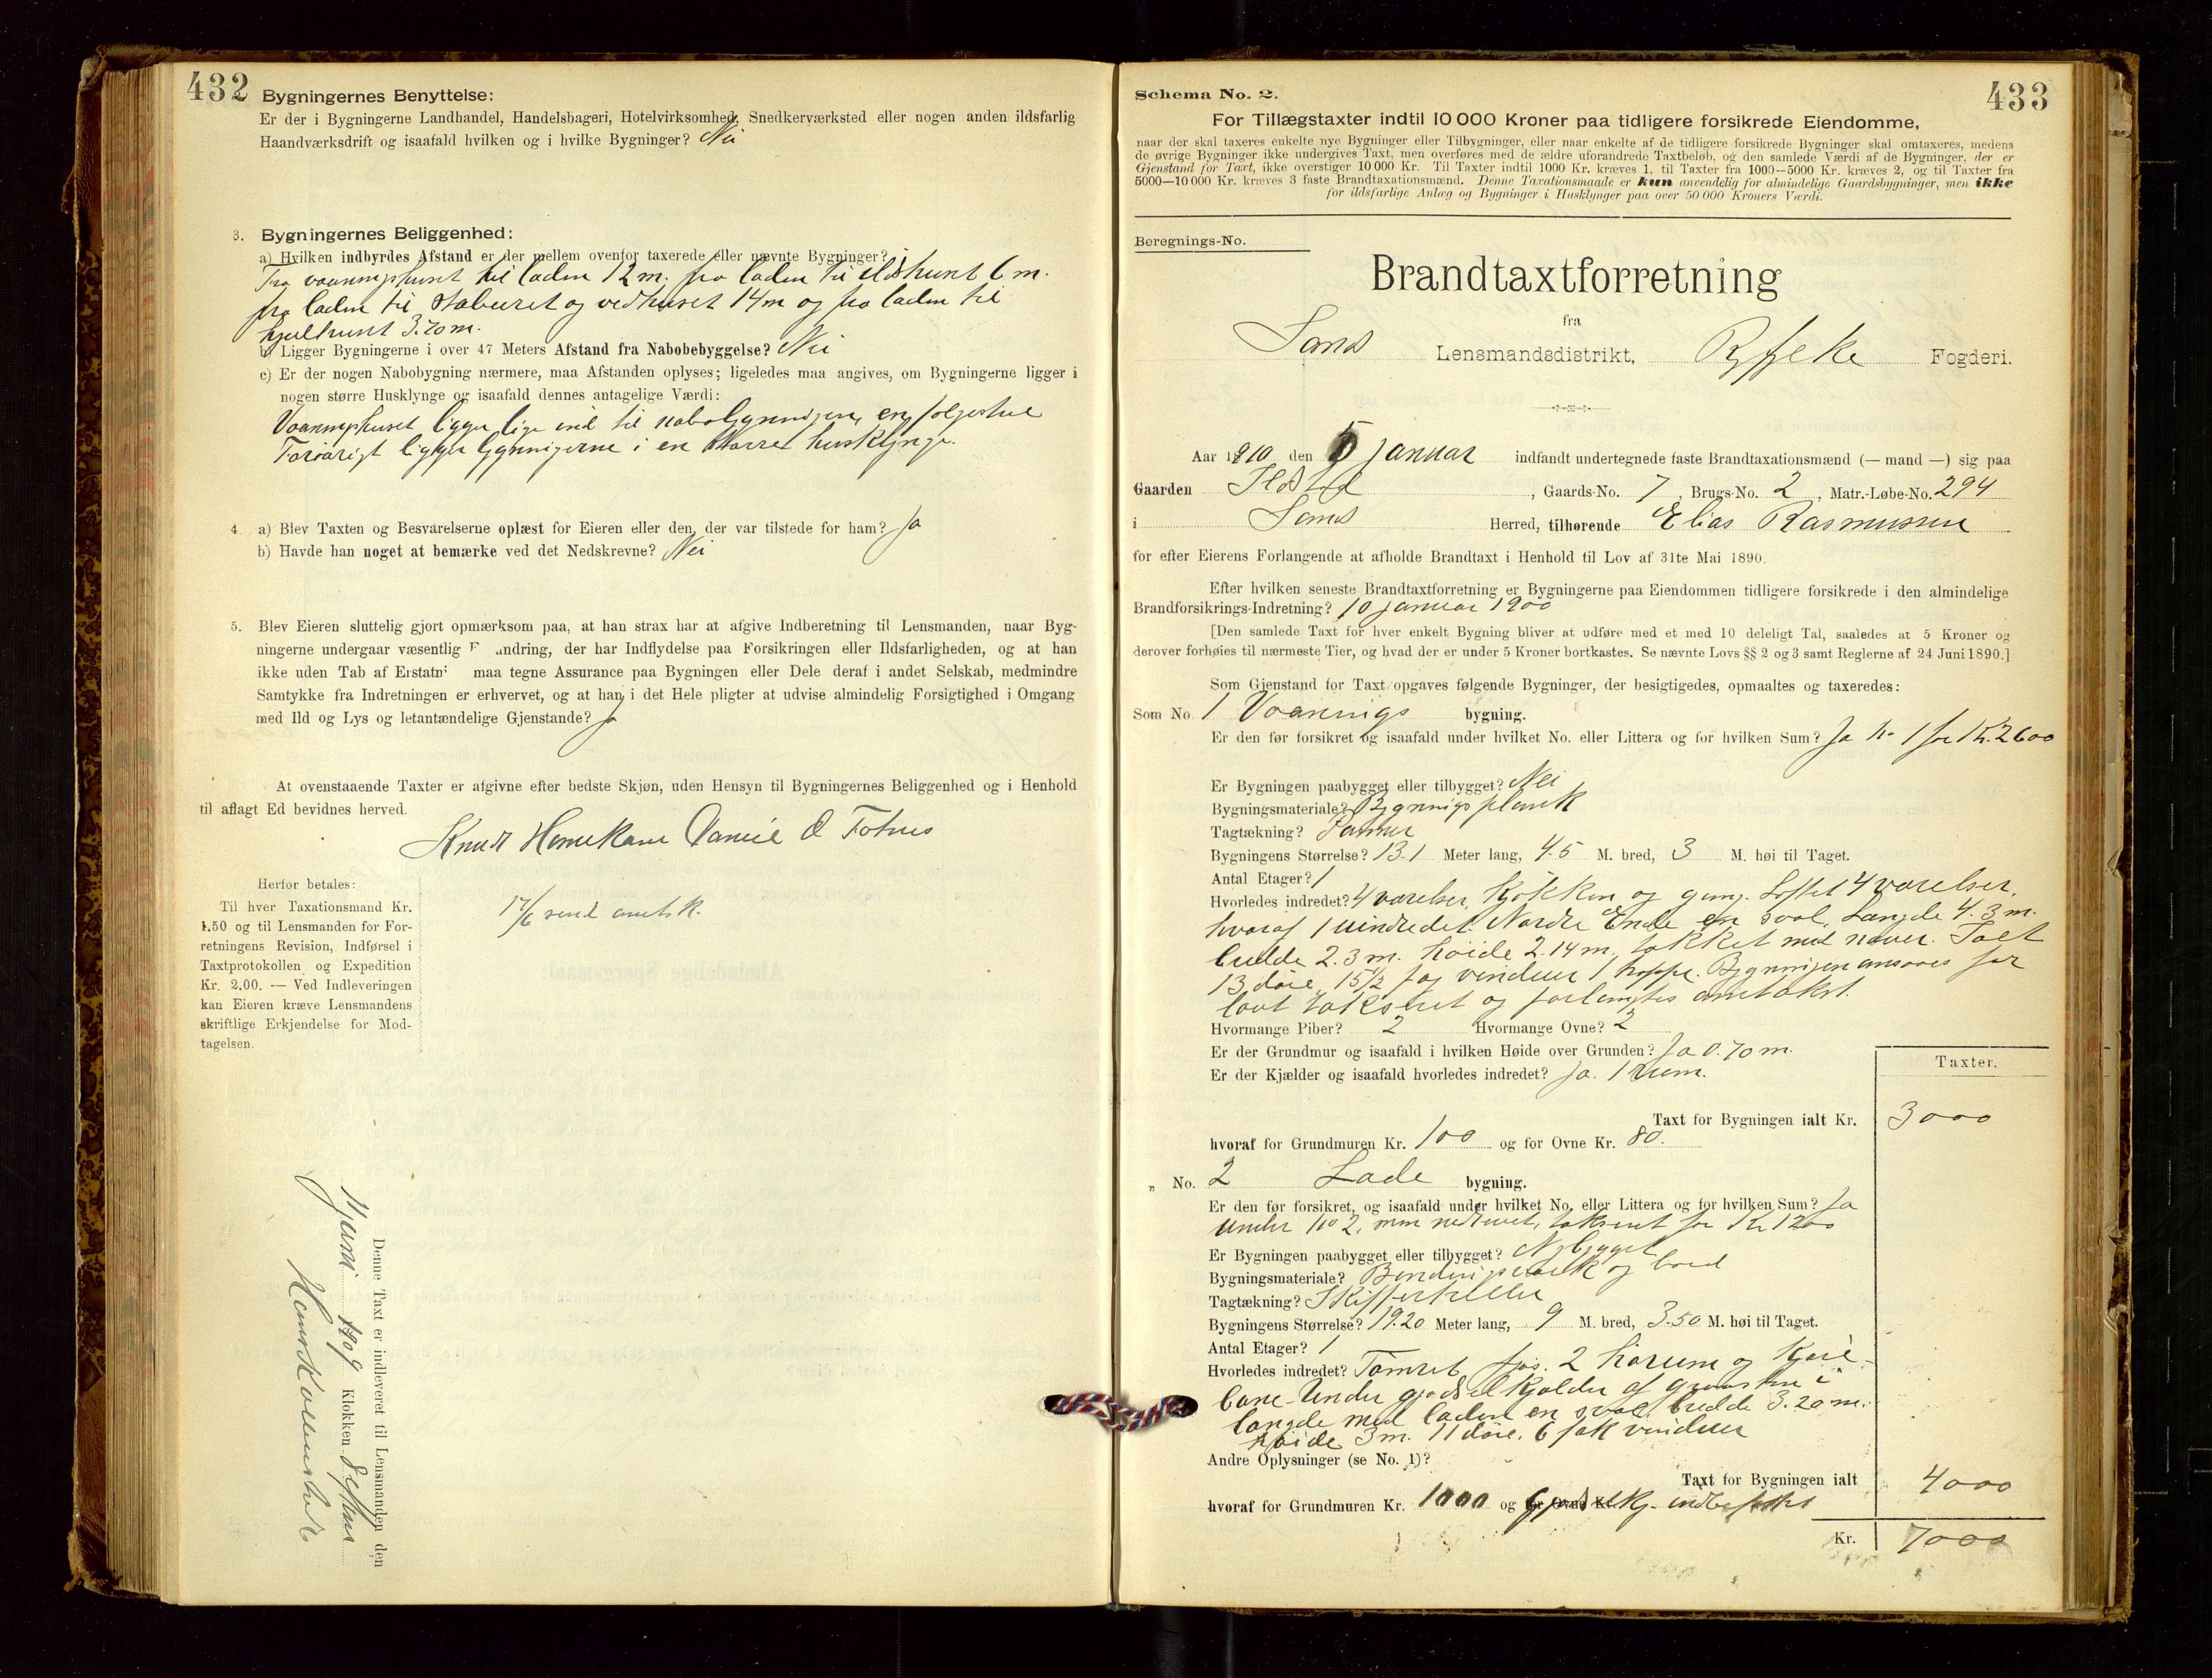 432
Bygningernes Benyttelse:
Er der i Bygningerne Landhandel, Handelsbageri, Hotelvirksomhed, Snedkerværksted eller nogen anden ildsfarlig
Haandværksdrift og isaafald hvilken og i hvilke Bygninger? Nei
3. Bygningernes Beliggenhed:
a) Hvilken indbyrdes Afstand er der mellem ovenfor taxerede eller nævnte Bygninger?
Fra vaaningshuset til laden 12 m. fra laden til ildhuset 6 m.
fra laden til staburet og vedhuset 14 m og fra laden til
hjulhuset 3.70 m.
b) Ligger Bygningerne i over 47 Meters Afstand fra Nabobebyggelse? Nei
c) Er der nogen Nabobygning nærmere, maa Afstanden oplyses; ligeledes maa angives, om Bygningerne ligger i
nogen større Husklynge og isaafald dennes antagelige Værdi:
Vaaningshuset ligger lige ind til nabobygningen,
Forøvrigt ligger bygningerne i en større husklynge.
4. a) Blev Taxten og Besvarelserne oplæst for Eieren eller den, der var tilstede for ham? Ja
b) Havde han noget at bemærke ved det Nedskrevne? Nei
5. Blev Eieren sluttelig gjort opmærksom paa, at han strax har at afgive Indberetning til Lensmanden, naar Byg-
ningerne undergaar væsentlig F andring, der har Indflydelse paa Forsikringen eller Ildsfarligheden, og at han
ikke uden Tab af Erstatni maa tegne Assurance paa Bygningen eller Dele deraf i andet Selskab, medmindre
Samtykke fra Indretningen er erhvervet, og at han i det Hele pligter at udvise almindelig Forsigtighed i Omgang
med Ild og Lys og letantændelige Gjenstande? Ja
At ovenstaaende Taxter er afgivne efter bedste Skjøn, uden Hensyn til Bygningernes Beliggenhed og i Henhold
til aflagt Ed bevidnes herved.
Knud Daniel
Herfor betales:
Til hver Taxationsmand Kr.
1.50 og til Lensmanden for For-
retningens Revision, Indførsel i
Taxtprotokollen og Expedition
Kr. 2.00. — Ved Indleveringen
kan Eieren kræve Lensmandens
skriftlige Erkjendelse for Mod-
tagelsen.
17/6 send amtsk.
Denne Taxt er indleveret til Lensmanden den
11 juni 1909 Klokken 8
433
Schema No. 2.
For Tillægstaxter indtil 10 000 Kroner paa tidligere forsikrede Eiendomme,
naar der skal taxeres enkelte nye Bygninger eller Tilbygninger, eller naar enkelte af de tidligere forsikrede Bygninger skal omtaxeres, medens
de øvrige Bygninger ikke undergives Taxt, men overføres med de ældre uforandrede Taxtbeløb, og den samlede Værdi af de Bygninger, der er
Gjenstand for Taxt, ikke overstiger 10 000 Kr. Til Taxter indtil 1000 Kr. kræves 1, til Taxter fra 1000—5000 Kr. kræves 2, og til Taxter fra
5000—10 000 Kr. kræves 3 faste Brandtaxationsmænd. Denne Taxationsmaade er kun anvendelig for almindelige Gaardsbygninger, men ikke
for ildsfarlige Anlæg og Bygninger i Husklynger paa over 50 000 Kroners Værdi.
Beregnings-No.
Brandtaxtforretning
fra
Sand Lensmandsdistrikt, Ryfylke Fogderi.
Aar 1910 den 5 Januar indfandt undertegnede faste Brandtaxationsmænd (— mand —) sig paa
Gaarden Ilstad, Gaards-No. 7, Brugs-No. 2, Matr.-Løbe-No. 294
i Sand Herred, tilhørende Elias Rasmussen
for efter Eierens Forlangende at afholde Brandtaxt i Henhold til Lov af 31te Mai 1890.
Efter hvilken seneste Brandtaxtforretning er Bygningerne paa Eiendommen tidligere forsikrede i den almindelige
Brandforsikrings-Indretning? 10 januar 1900
[Den samlede Taxt for hver enkelt Bygning bliver at udføre med et med 10 deleligt Tal, saaledes at 5 Kroner og
derover forhøies til nærmeste Tier, og hvad der er under 5 Kroner bortkastes. Se nævnte Lovs §§ 2 og 3 samt Reglerne af 24 Juni 1890.]
Som Gjenstand for Taxt opgaves følgende Bygninger, der besigtigedes, opmaaltes og taxeredes:
Som No. 1 Vaanings bygning.
Er den før forsikret og isaafald under hvilket No. eller Littera og for hvilken Sum? Ja No 1 for Kr. 2600
Er Bygningen paabygget eller tilbygget? Nei
Bygningsmateriale? Bygningsplank
Tagtækning? Panner
Bygningens Størrelse? 13.1 Meter lang, 4.5 M. bred, 3 M. høi til Taget.
Antal Etager? 1
Hvorledes indredet? 4 værelser, kjøkken og gang. Loftet 4 værelser,
hvoraf 1 uindredet. Nordre Ende en sval. Længde 4.3 m.
bredde 2.3 m. høide 2.14 m, tækket med never. Ialt
13 døre, 15 1/2 fag vinduer 1 trappe. Bygningen ansaaes for
lavt takseret og forlangtes omtakst.
Hvormange Piber? 2 Hvormange Ovne? 2
Er der Grundmur og isaafald i hvilken Høide over Grunden? Ja 0.70 m.
Er der Kjælder og isaafald hvorledes indredet? Ja. 1 rum.
Taxter.
Taxt for Bygningen ialt Kr. 3000
hvoraf for Grundmuren Kr. 100 og for Ovne Kr. 80.
" No. 2 Lade bygning.
Er den før forsikret, og isaafald under hvilket No. eller Littera og for hvilken Sum? Ja
under No 2, men nedrevet, takseret for Kr 1200
Er Bygningen paabygget eller tilbygget? Nybygget
Bygningsmateriale? Bindingsværk og bord
Tagtækning? Skifferheller
Bygningens Størrelse? 19.20 Meter lang, 9 M. bred, 3.50 M. høi til Taget.
Antal Etager? 1
Hvorledes indredet? Tømret fjøs. 2 hørum og kjøre-
bane. Under gjødselkjælder af graasten i
længde med laden en sval, bredde 3.20 m.
høide 3 m. 11 døre. 6 fak vinduer
Andre Oplysninger (se No. 1)?
Taxt for Bygningen ialt 4000
hvoraf for Grundmuren Kr. 1000 og for Ovne Kr. Gjødselkj. indbefattet
Kr. 7000